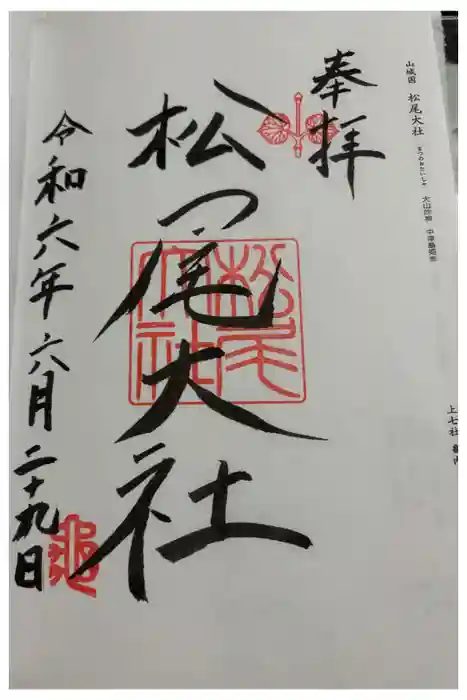 山城国 松尾大社 まつのおたいしゃ 大山咋神 中津島姫命
上七社
奉拝
松尾大社
松尾大社
令和六年六月二十九日
亀